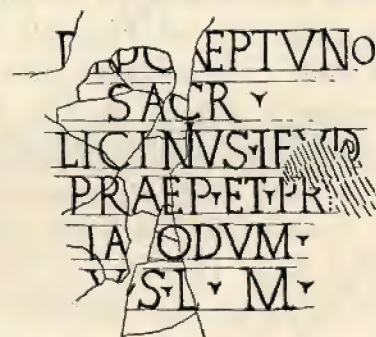 D  O  EPTVNO
SACR
LICINVS·IF
PRAEP·ET·PR
IA ODVM·
V S·L · M ·